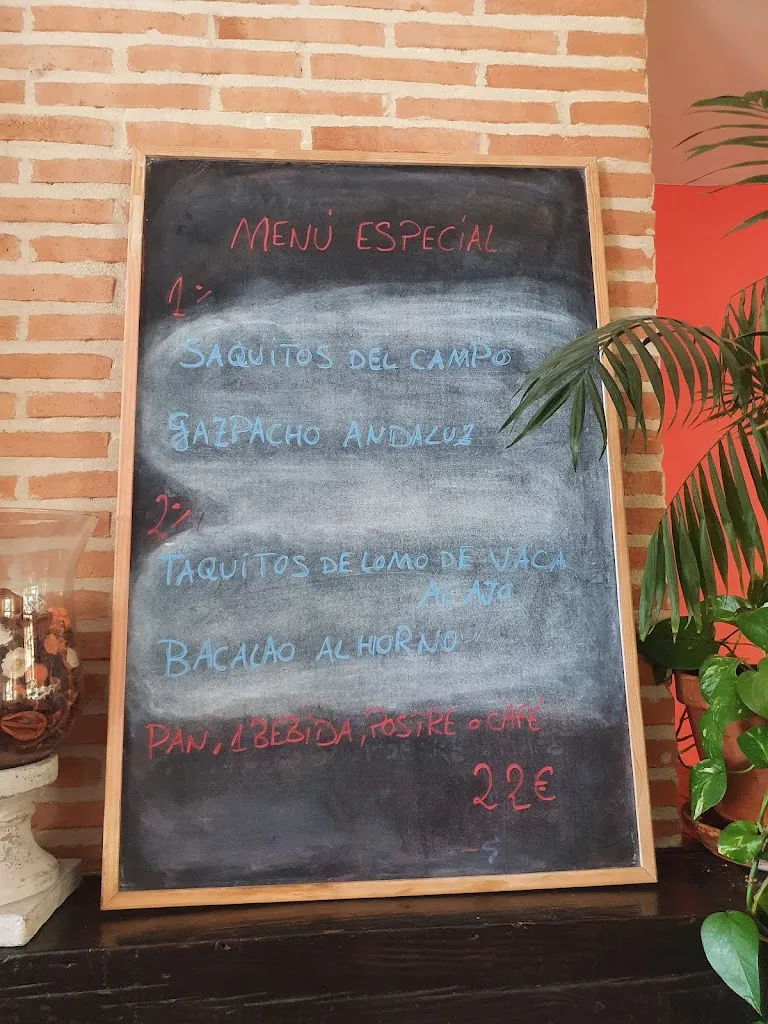 MENÚ ESPECIAL
1º
SAQUITOS DEL CAMPO
GAZPACHO ANDALUZ
2º
TAQUITOS DE LOMO DE VACA
AL AJO
BACALAO AL HORNO
PAN, 1 BEBIDA, POSTRE o CAFÉ
22€